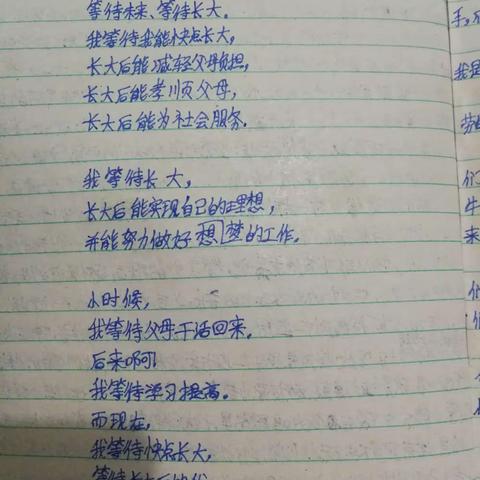 等待未来、等待长大。
我等待我能快点长大，
长大后能减轻父母负担，
长大后能孝顺父母，
长大后能为社会服务.
我等待长大，
长大后能实现自己的理想，
并能努力做好想梦的工作。
小时候，
我等待父母干活回来.
后来啊！
我等待学习提高。
而现在，
我等待快点长大，
手。
我是
们
牛
来